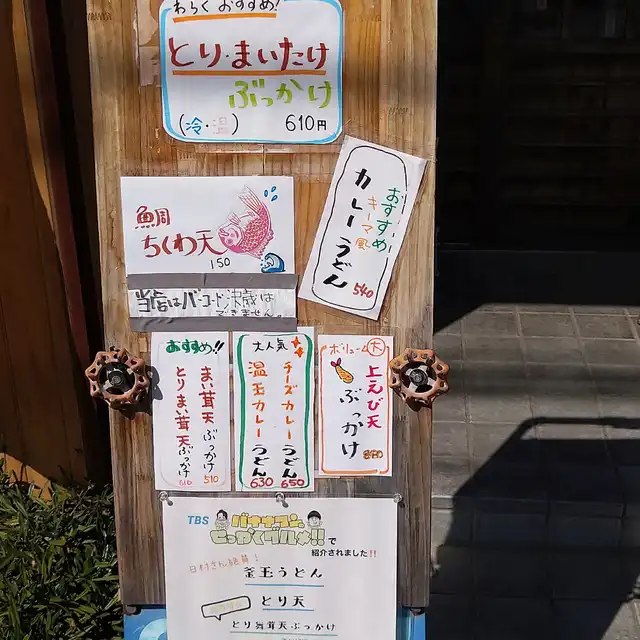 わらく おすすめ!
とり・まいたけ
ぶっかけ
(冷・温) 610円
おすすめ
キーマ風
カレーうどん
540
鯛
ちくわ天
150
当店はバーコード決済は
できません。
おすすめ!!
まい茸天ぶっかけ
510
とりまい茸天ぶっかけ
610
大人気
チーズカレーうどん
650
温玉カレーうどん
630
ボリューム大
上えび天
ぶっかけ
TBS
バナナマンの
せっかくグルメ!!で
紹介されました!!
日村さん絶賛!
釜玉うどん
とり天
とり舞茸天ぶっかけ